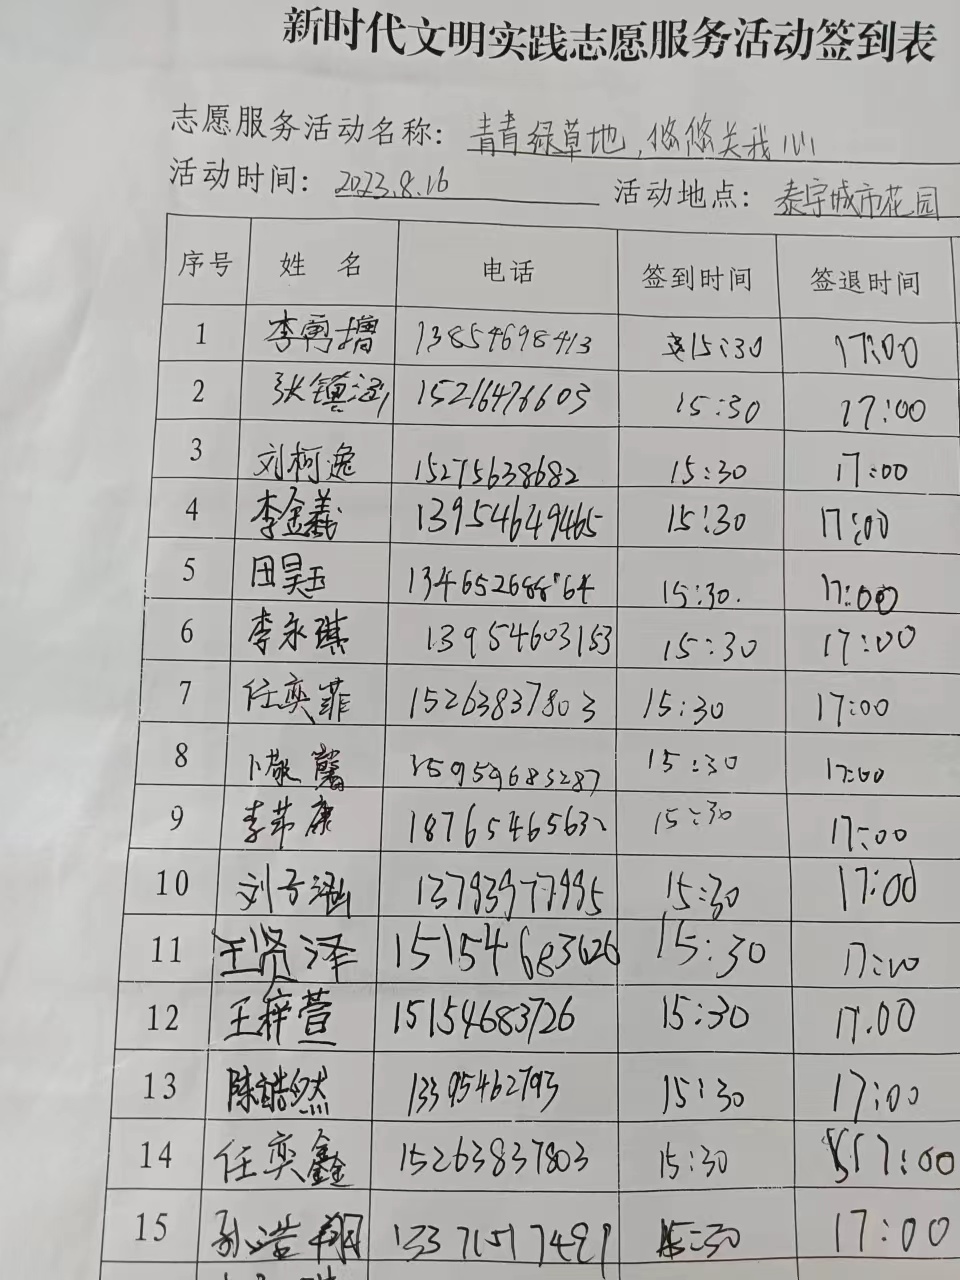 新时代文明实践志愿服务活动签到表
志愿服务活动名称: 青青绿草地,悠悠关我心
活动时间: 2023.8.16 活动地点: 泰宇城市花园
序号 姓名 电话 签到时间 签退时间
1 李再增 13854698413 15:30 17:00
2 张镇涵 15216476603 15:30 17:00
3 刘柯逸 15275638682 15:30 17:00
4 李金義 13954649465 15:30 17:00
5 田昊玉 15:30. 17:00
6 李永琪 13954603153 15:30 17:00
7 任奕菲 15263837803 15:30 17:00
8 卜敬馨 15:30 17:00
9 李芾康 18765465632 15:30 17:00
10 刘子涵 13793977995 15:30 17:00
11 王贤泽 15154683626 15:30 17:00
12 王梓萱 15154683726 15:30 17.00
13 陈皓然 13395462793 15:30 17:00
14 任奕鑫 15263837803 15:30 17:00
15 孙浩翔 13371517491 15:30 17:00